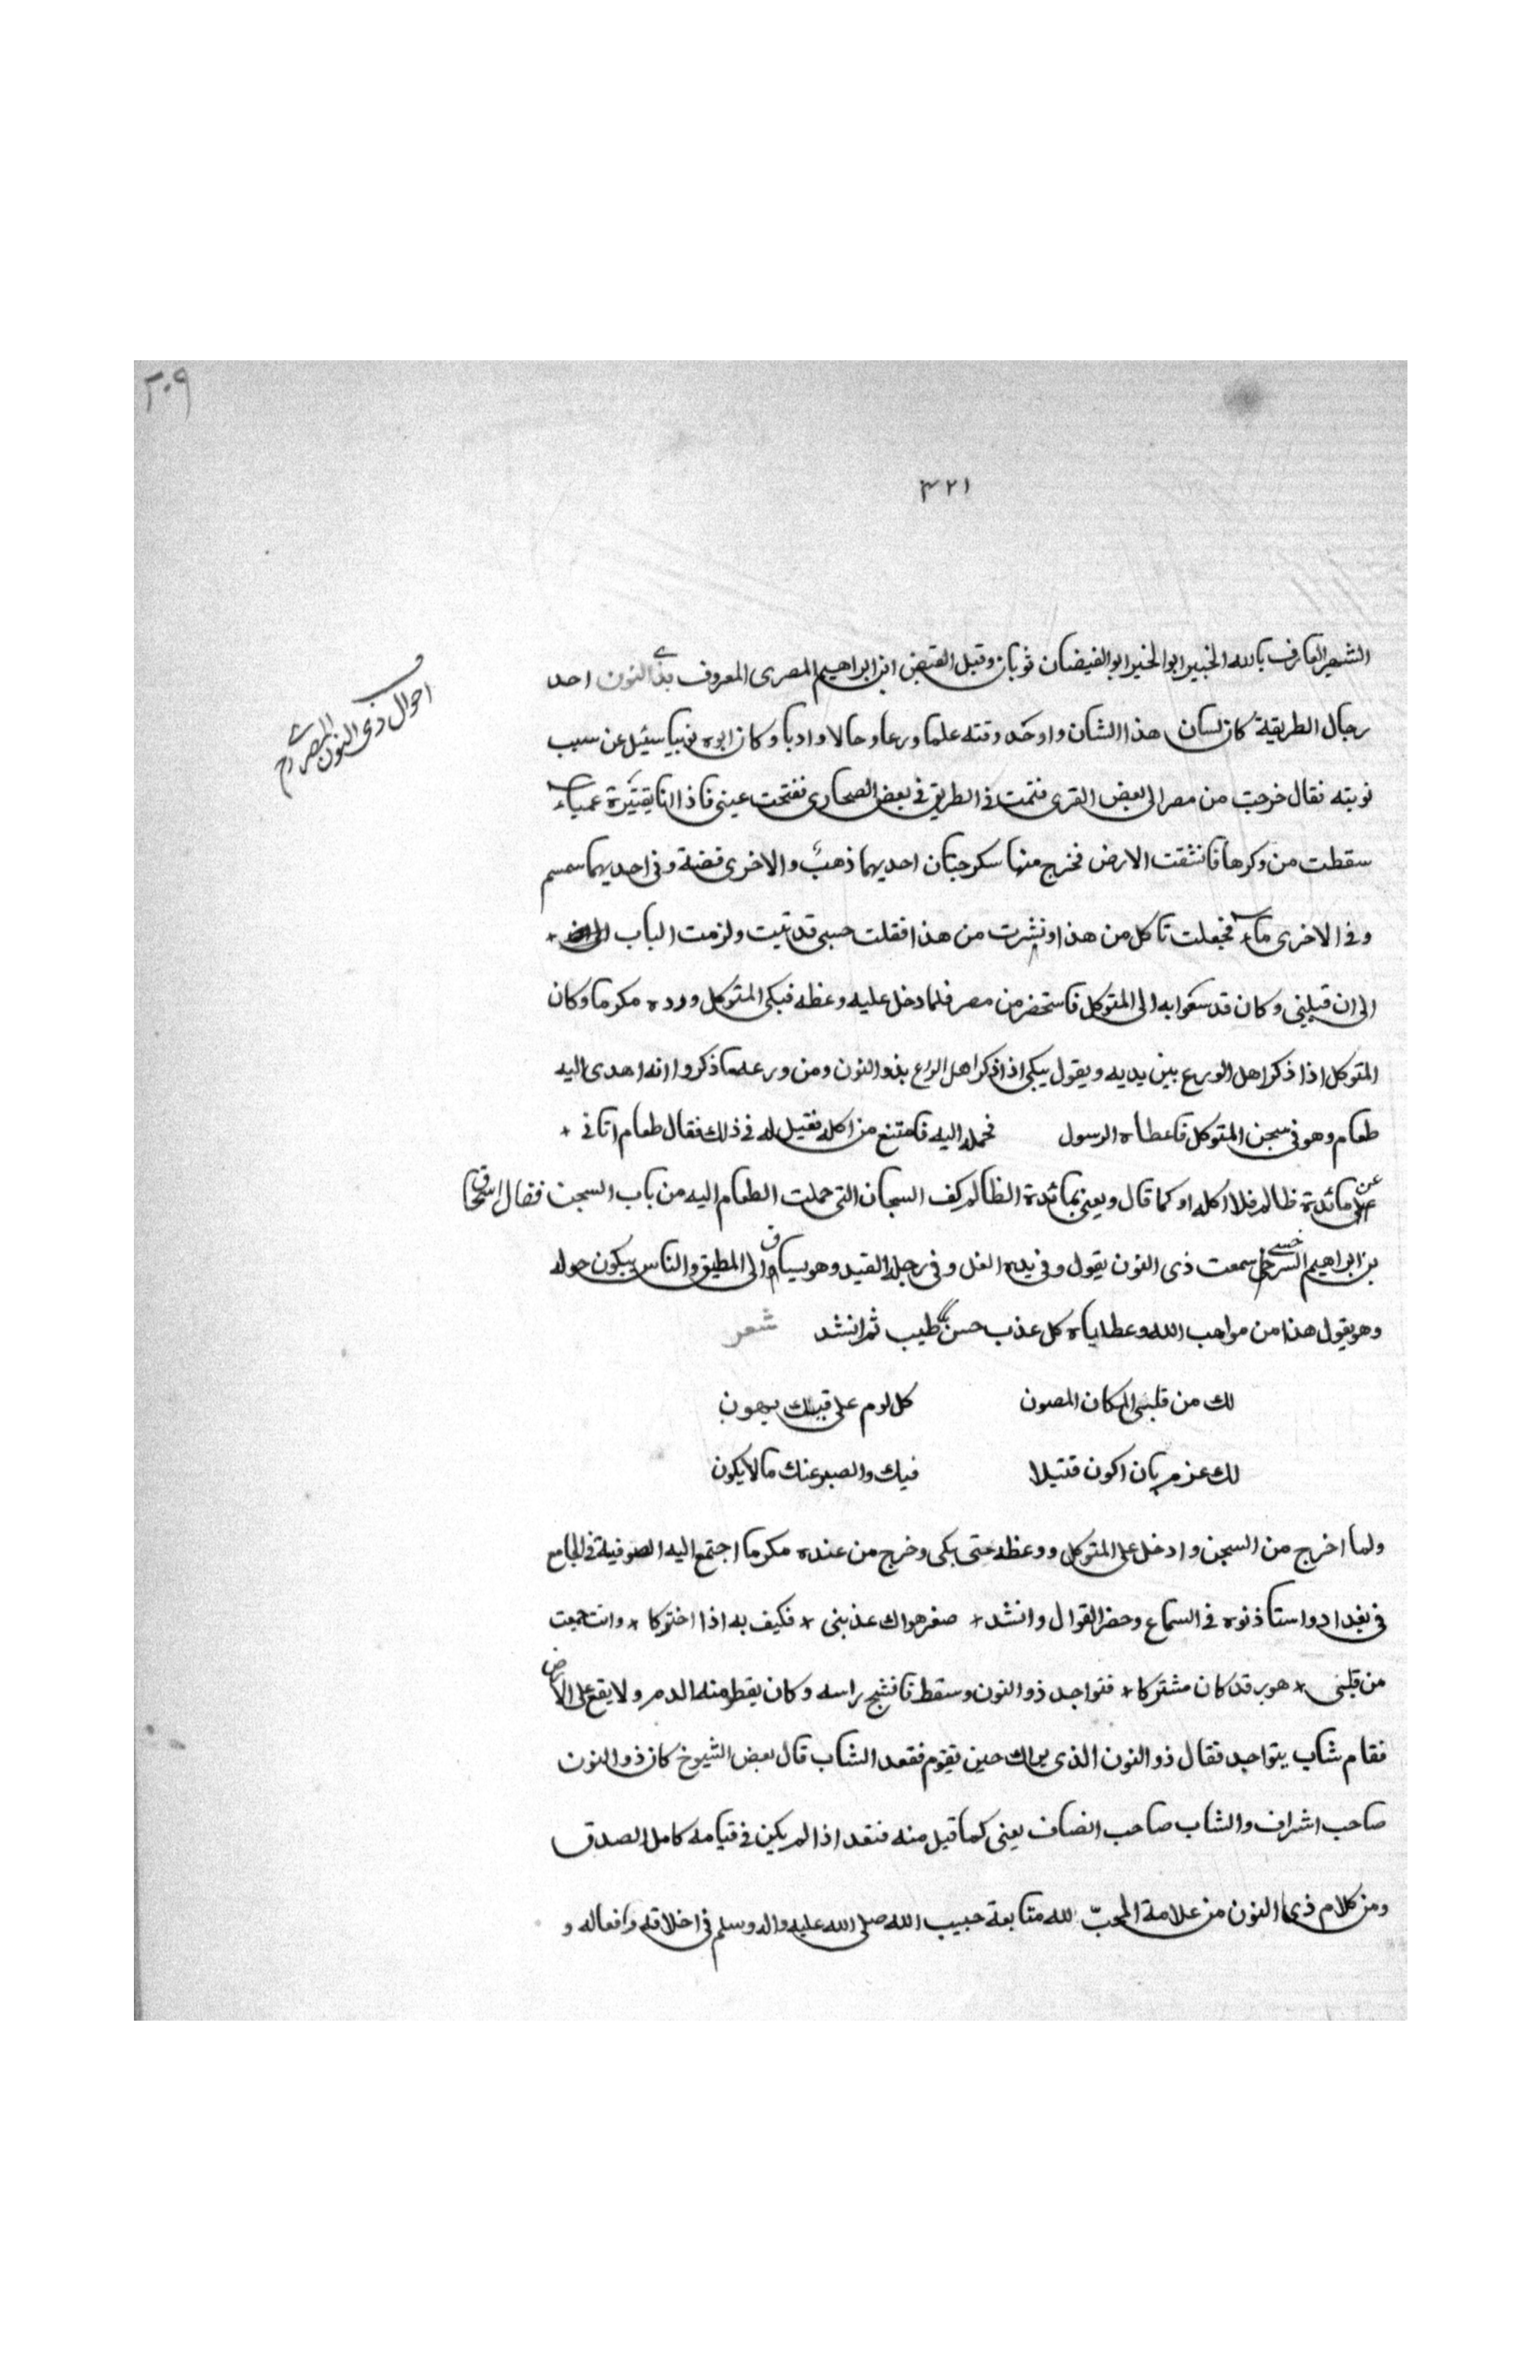 ٢٠٩
٣٢١
احوال ذى النون المصرى رح
الشهير العارف بالله الخبير ابو الخير ابو الفيضان ثوبان وقيل الفيض ابن ابراهيم المصرى المعروف بذى النون احد
رجال الطريقة كان لسان هذا الشان واوحد وقته علما ورعا وحالا وادبا وكان ابوه نوبيا سئيل عن سبب
توبته فقال خرجت من مصر الى بعض القرى فنمت فى الطريق فى بعض الصحارى ففتحت عينى فاذا انا بقنبرة عمياء
سقطت من وكرها فانشقت الارض فخرج منها سكرجتان احديهما ذهب والاخرى فضة وفى احديهما سمسم
وفى الاخرى ماء فجعلت تاكل من هذا وتشرب من هذا فقلت حسبى قد تبت ولزمت الباب
الى ان قبلنى وكان قد سعوا به الى المتوكل فاستحضر من مصر فلما دخل عليه وعظه فبكى المتوكل ورده مكرما وكان
المتوكل اذا ذكر اهل الورع بين يديه ويقول يبكى اذا ذكر اهل الورع بذو النون ومن ورعه ما ذكروا انه اهدى اليه
طعام وهو فى سجن المتوكل فاعطاه الرسول فحمله اليه فامتنع من اكله فقيل له فى ذلك فقال طعام اتانى +
عن على مائدة ظالم فلا اكله او كما قال ويعنى بمائدة الظالم كف السجان التى حملت الطعام اليه من باب السجن فقال اسحاق
بن ابراهيم السرخسى سمعت ذى النون يقول وفى يده الغل وفى رجله القيد وهو يساق الى المطبق والناس يبكون حوله
وهو يقول هذا من مواهب الله وعطاياه كل عذب حسن طيب ثم انشد شعر
لك من قلبى المكان المصون كل لوم على فيك يهون
لك عزم بان اكون قتيلا فيك والصبر عنك ما لا يكون
ولما اخرج من السجن وادخل على المتوكل ووعظه حتى بكى وخرج من عنده مكرما اجتمع اليه الصوفية فى الجامع
فى بغداد واستاذنوه فى السماع وحضر القوال وانشد + صغير هواك عذبنى + فكيف به اذا احتركا + وانت جمعت
من قلبى + هوى قد كان مشتركا + فتواجد ذو النون وسقط فانشج راسه وكان يقطر منه الدم ولا يقع على الارض
فقام شاب يتواجد فقال ذو النون الذى يراك حين تقوم فقعد الشاب قال بعض الشيوخ كان ذو النون
صاحب اشراف والشاب صاحب انصاف يعنى كما قبل منه فقعد اذا لم يكن فى قيامه كامل الصدق
ومن كلام ذى النون من علامة المحب لله متابعة حبيب الله صلى الله عليه واله وسلم فى اخلاقه وافعاله و